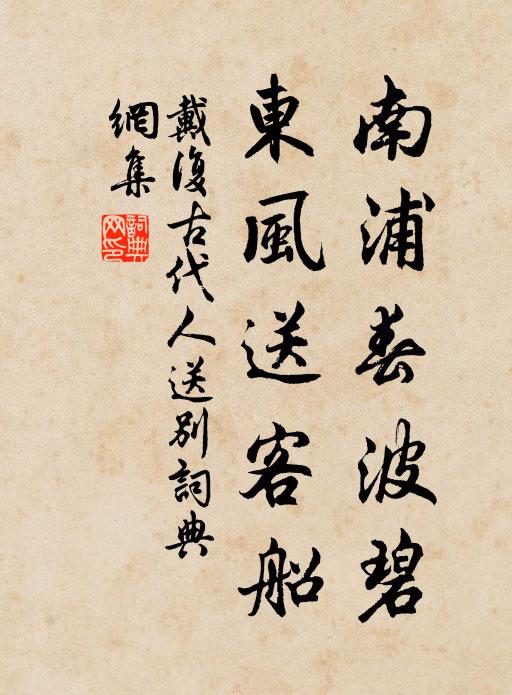 南浦春波碧
東風送客船
戴復古代人送別詞典
網集
詞典
网印